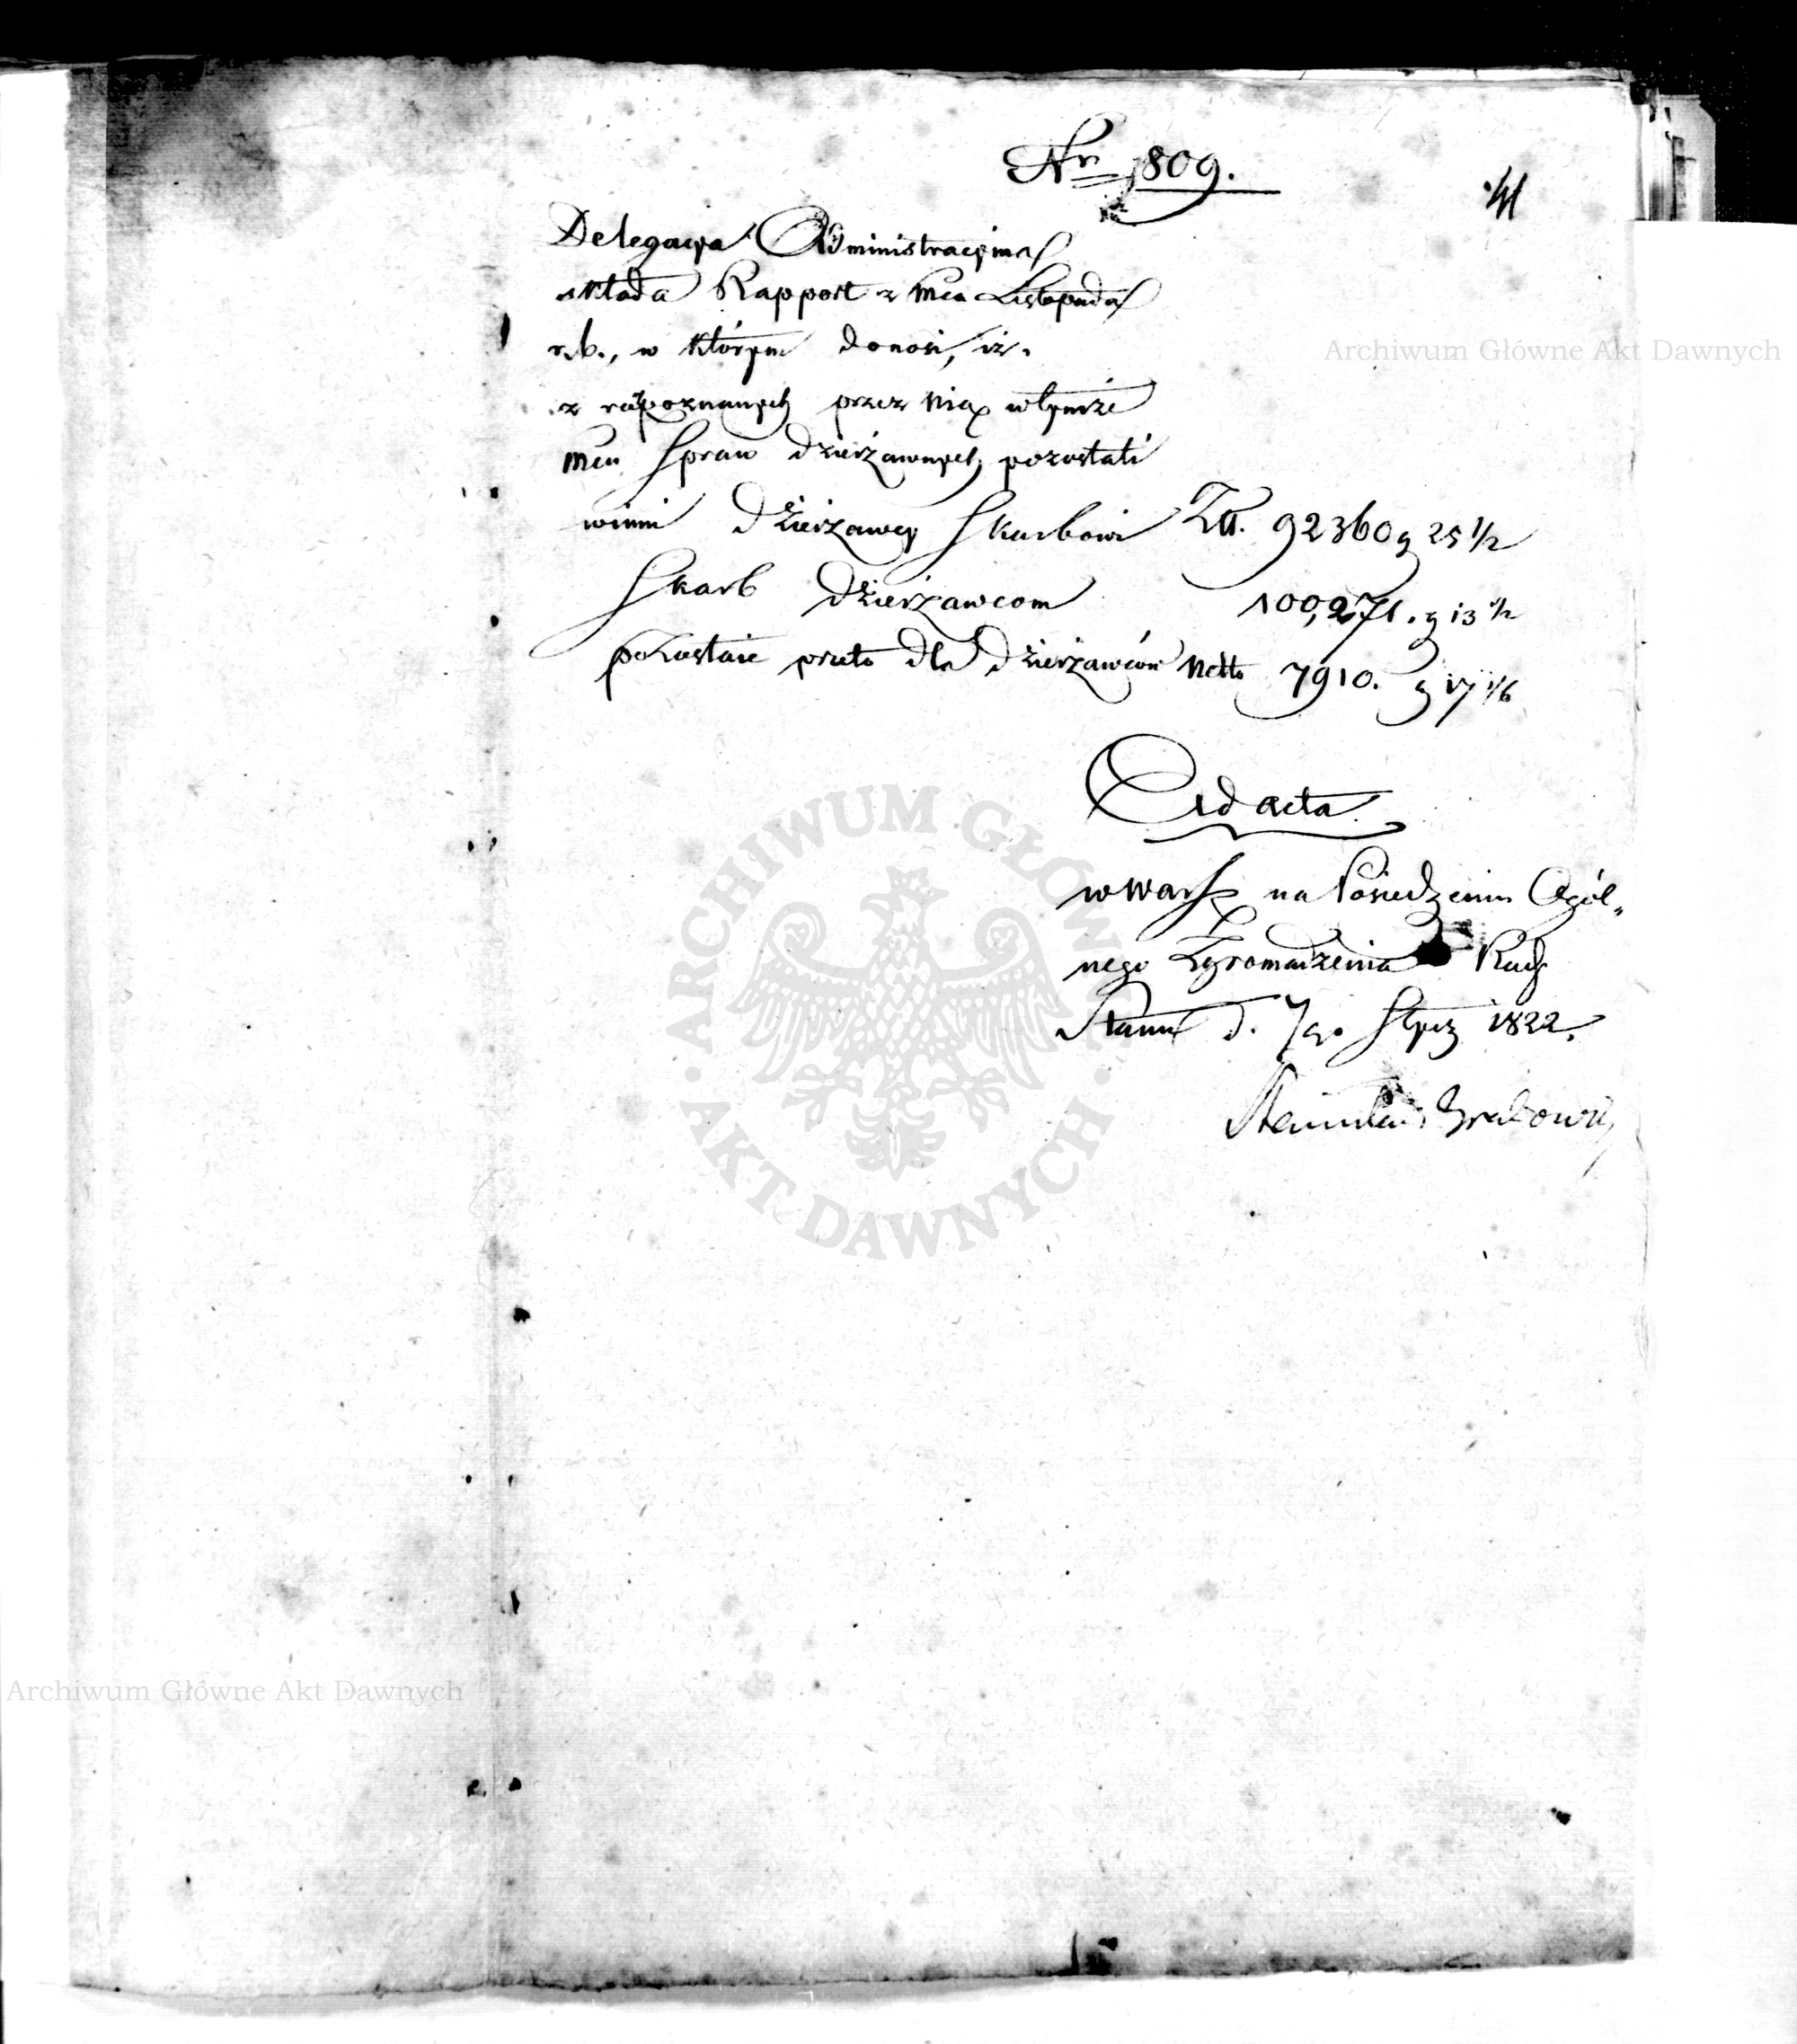 Nr 1809.
41
Delegacya Administracyina
składa Rapport z Mca Listopada
r.b., w którym donosi, iż
z rozpoznanych przez Nią w tymże
Mcu Spraw dzierżawnych pozostali
winni dzierżawcy Skarbowi Złł. 92360 g 25 1/2
Skarb dzierżawcom 100,271. g 13 1/2
pozostaie przeto dla dzierżawców Netto 7910. g 17 1/6
Ad acta
w Warsz na Posiedzeniu Ogól„
nego Zgromadzenia Rady
Stanu d. 7go Stycz 1822.
Stanisław Grabowski
Archiwum Główne Akt Dawnych
ARCHIWUM GŁÓWNE AKT DAWNYCH
Archiwum Główne Akt Dawnych